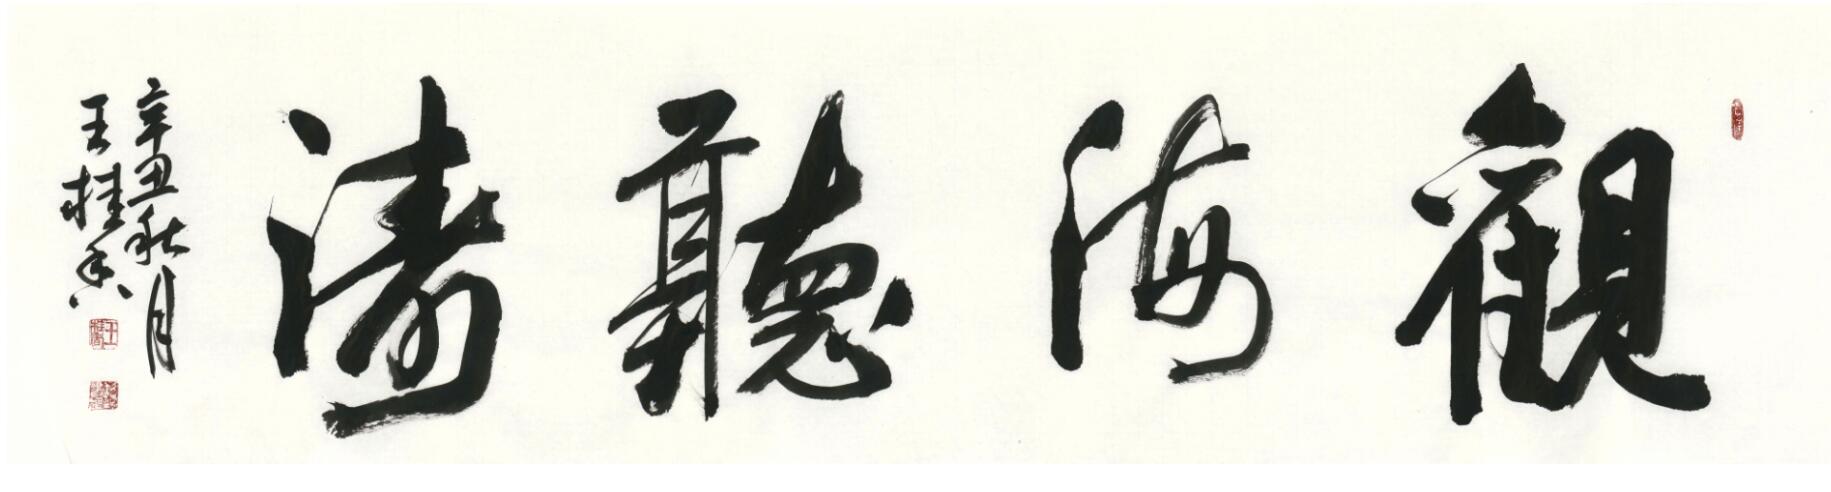 觀海聽濤
辛丑秋月
王桂香